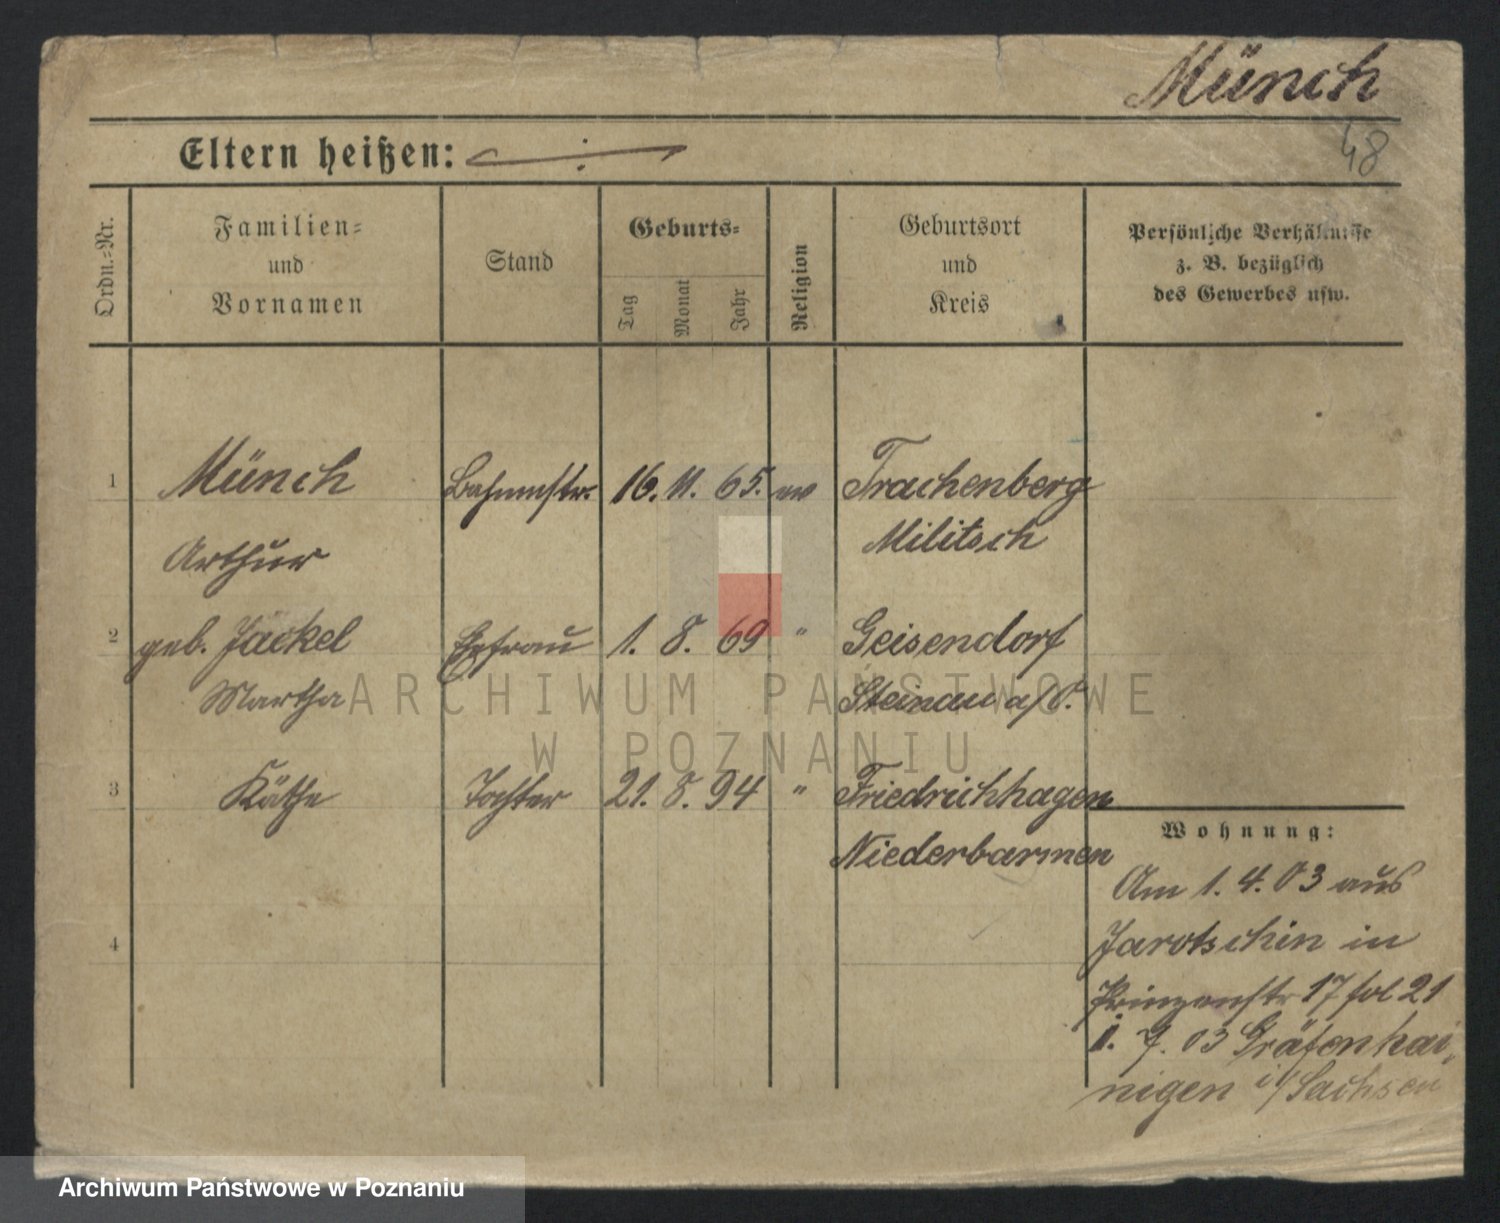 Münch
48
Eltern heißen:
Ordn.-Nr.
Familien-
und
Vornamen
Stand
Geburts-
Tag
Monat
Jahr
Religion
Geburtsort
und
Kreis
Persönliche Verhältnisse
z. B. bezüglich
des Gewerbes usw.
1 Münch Bahnmstr. 16. 11. 65. ev Trachenberg
Militsch
Arthur
2 geb. Jäckel Ehefrau 1. 8. 69 " Geisendorf
Martha Steinau a/O.
3 Käthe Tochter 21. 8. 94 " Friedrichhagen
Niederbarmen
4
Wohnung:
Am 1. 4. 03 aus
Jarotschin in
Prinzenstr 17 fol 21
1. 7. 03 Gräfenhai-
nigen i/Sachsen
ARCHIWUM PAŃSTWOWE
W POZNANIU
Archiwum Państwowe w Poznaniu